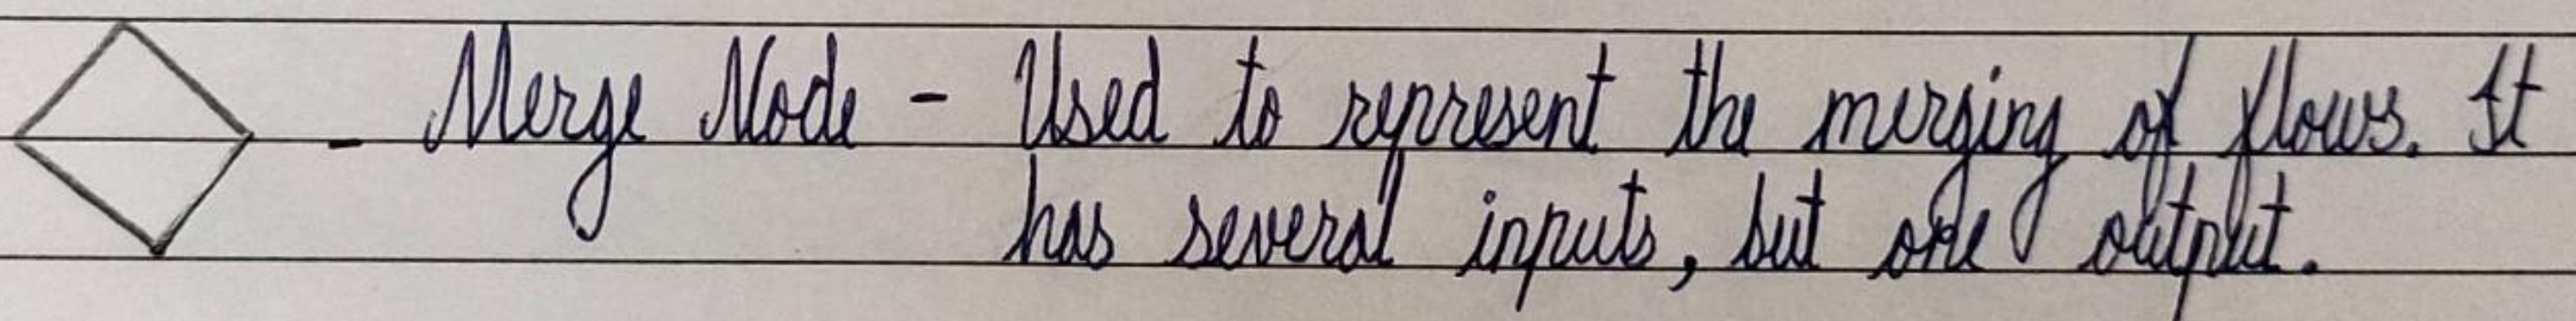 - Merge Node - Used to represent the merging of flows. It
has several inputs, but one output.